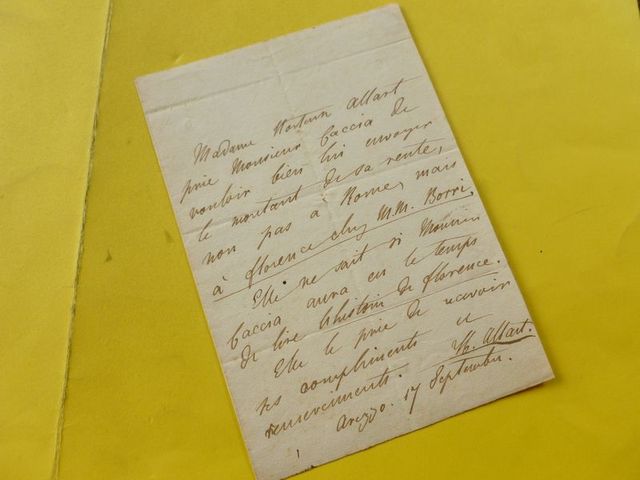 Madame Hortense Allart
prie Monsieur Caccia de
vouloir bien lui envoyer
le montant de sa rente,
non pas à Rome, mais
à florence chez M.M. Borri.
Elle ne sait si Monsieur
Caccia aura eu le temps
de lire l'histoire de florence.
Elle le prie de recevoir
ses compliments et
remerciments. H. Allart.
Arezzo. 17 Septembre.